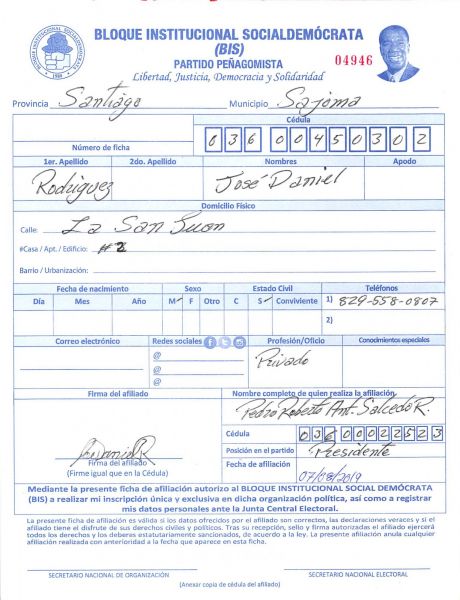 BLOQUE INSTITUCIONAL SOCIALDEMÓCRATA
(BIS)
PARTIDO PEÑAGOMISTA
04946
Libertad, Justicia, Democracia y Solidaridad
Provincia Santiago Municipio Sajoma
Cédula
Número de ficha 036 0045030 2
1er. Apellido 2do. Apellido Nombres Apodo
Rodriguez José Daniel
Domicilio Físico
Calle: La San Juan
#Casa / Apt. / Edificio: #2
Barrio / Urbanización:
Fecha de nacimiento Sexo Estado Civil Teléfonos
Día Mes Año M F Otro C S Conviviente 1) 829-558-0807
2)
Correo electrónico Redes sociales Profesión/Oficio Conocimientos especiales
@ Privado
@
@
Firma del afiliado Nombre completo de quien realiza la afiliación
Pedro Roberto Ant. Salcedo R.
Cédula 036 0002252 3
Firma del afiliado Posición en el partido Presidente
(Firme igual que en la Cédula) Fecha de afiliación 07/08/2019
Mediante la presente ficha de afiliación autorizo al BLOQUE INSTITUCIONAL SOCIAL DEMÓCRATA
(BIS) a realizar mi inscripción única y exclusiva en dicha organización política, así como a registrar
mis datos personales ante la Junta Central Electoral.
La presente ficha de afiliación es válida si los datos ofrecidos por el afiliado son correctos, las declaraciones veraces y si el
afiliado tiene el disfrute de sus derechos civiles y políticos. Tras su recepción, sello y firma autorizadas el afiliado ejercerá
todos los derechos y los deberes estatutariamente sancionados, de acuerdo a la ley. La presente afiliación anula cualquier
afiliación realizada con anterioridad a la fecha que aparece en esta ficha.
SECRETARIO NACIONAL DE ORGANIZACIÓN SECRETARIO NACIONAL ELECTORAL
(Anexar copia de cédula del afiliado)